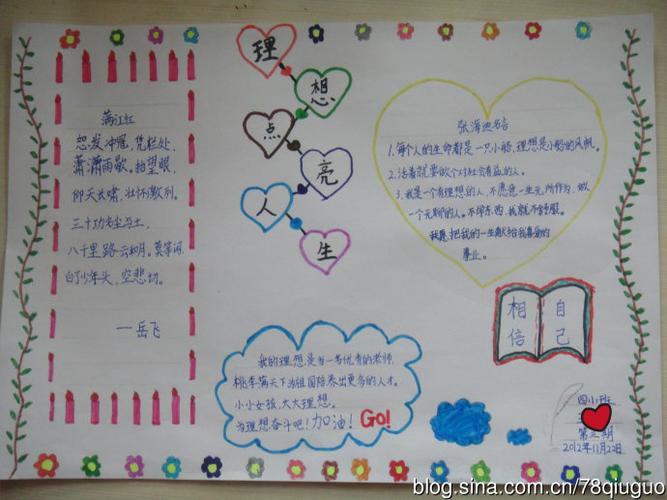 理
想
点
亮
人
生
满江红
怒发冲冠,凭栏处,
潇潇雨歇。抬望眼,
仰天长啸,壮怀激烈。
三十功名尘与土,
八千里路云和月。莫等闲
白了少年头,空悲切。
—岳飞
张海迪名言
1.每个人的生命都是一只小船,理想是小船的风帆。
2.活着就要做个对社会有益的人。
3.我是一个有理想的人,不愿意一生无所作为,做
一个无聊的人。不学东西,我就不舒服。
我愿把我的一生献给我喜爱的
事业。
相信
自己
我的理想是当一名优秀的老师,
桃李满天下为祖国培养出更多的人才。
小小女孩,大大理想。
为理想奋斗吧!加油!Go!
四小班
第三期
2012年11月2日
blog.sina.com.cn/78qiuguo